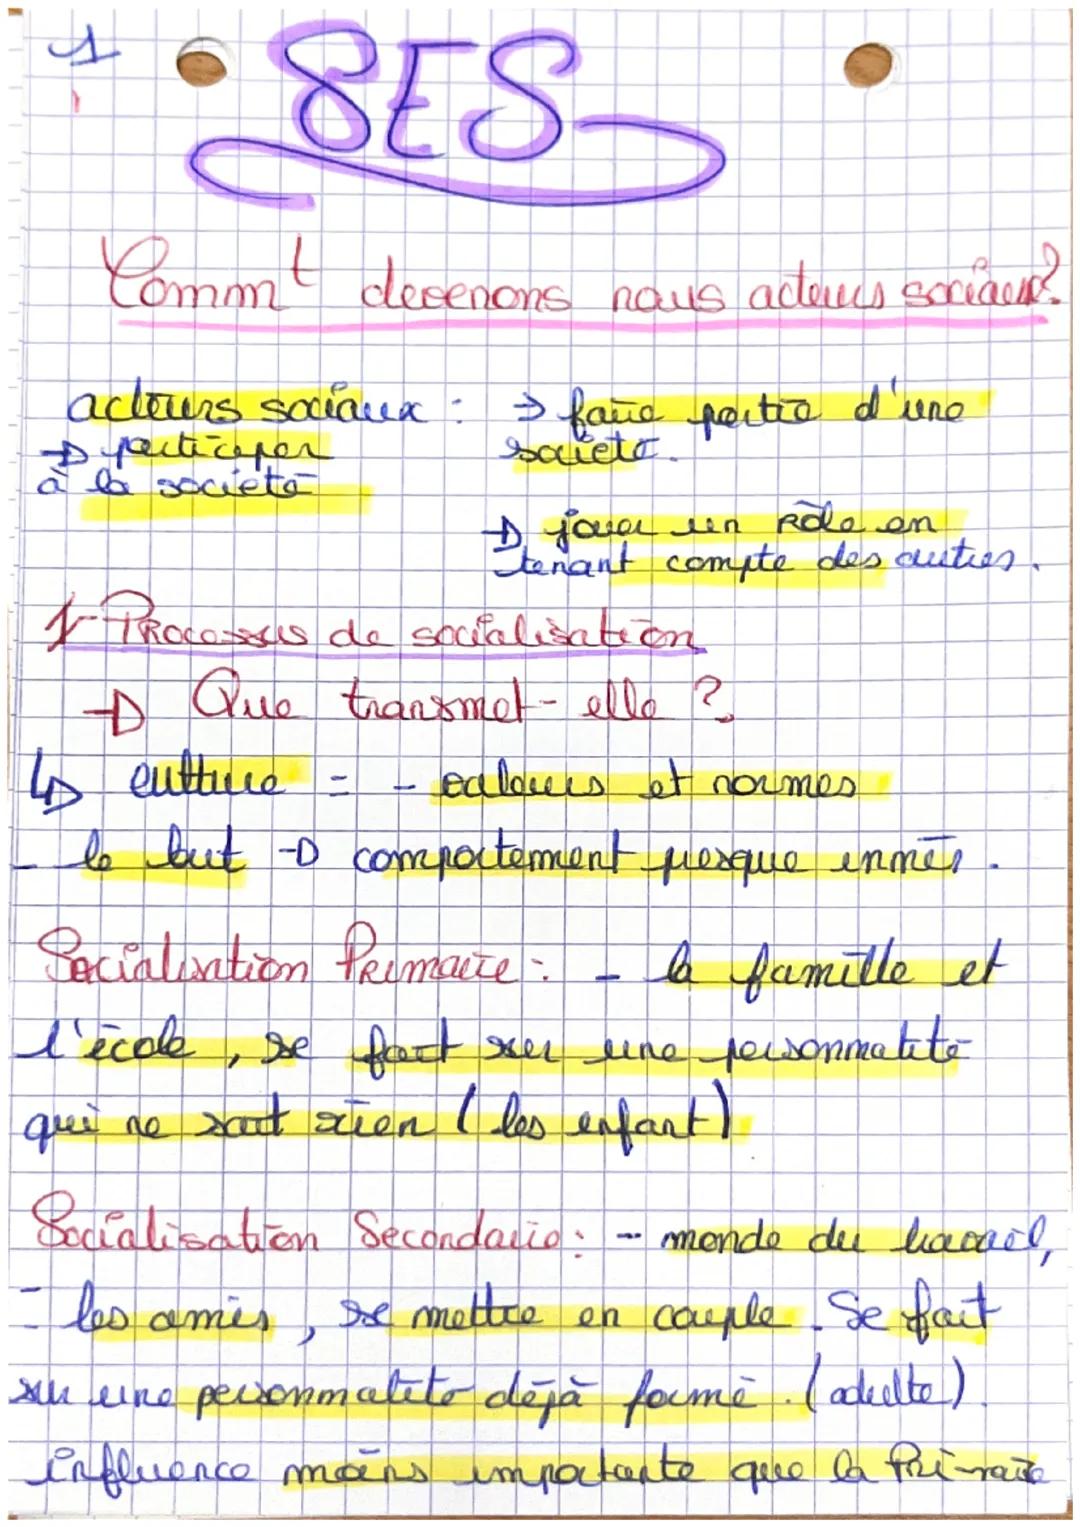 1
SES
Commt devenons nous acteurs sociaux?
acteurs sociaux : → faire partie d'une
→ participer société.
à la société
→ jouer un Rôle en
tenant compte des autres.
1- Processus de socialisation
→ Que transmet-elle ?
↳ culture = - valeurs et normes
- le but → comportement presque innés.
Socialisation Primaire : - la famille et
l'école, se fait sur une personnalité
qui ne sait rien (les enfant)
Socialisation Secondaire : - monde du travail,
- les amis, se mettre en couple. Se fait
sur une personnalité déjà formé. (adulte).
influence moins importante que la Primaire